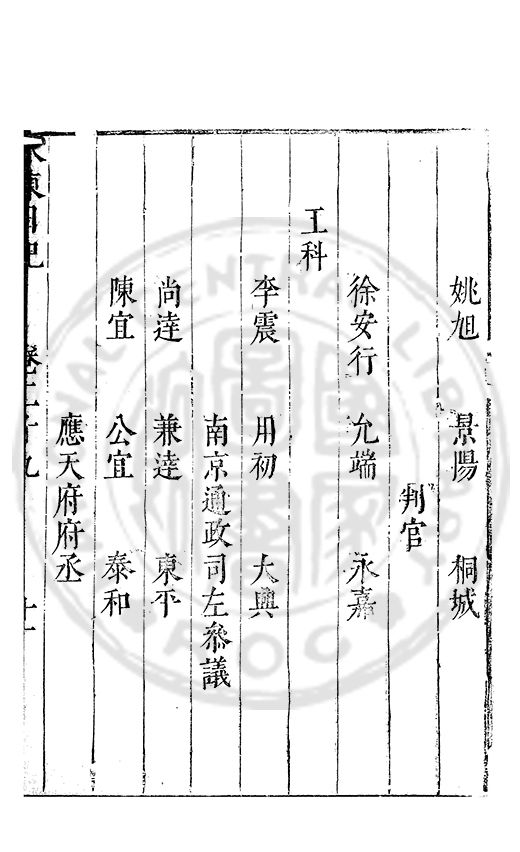 姚旭 景陽 桐城
判官
徐安行 允端 永嘉
工科
李震 用初 大興
南京通政司左叅議
尚達 兼達 東平
陳宜 公宜 泰和
應天府府丞
水東日記 卷二十九 十一